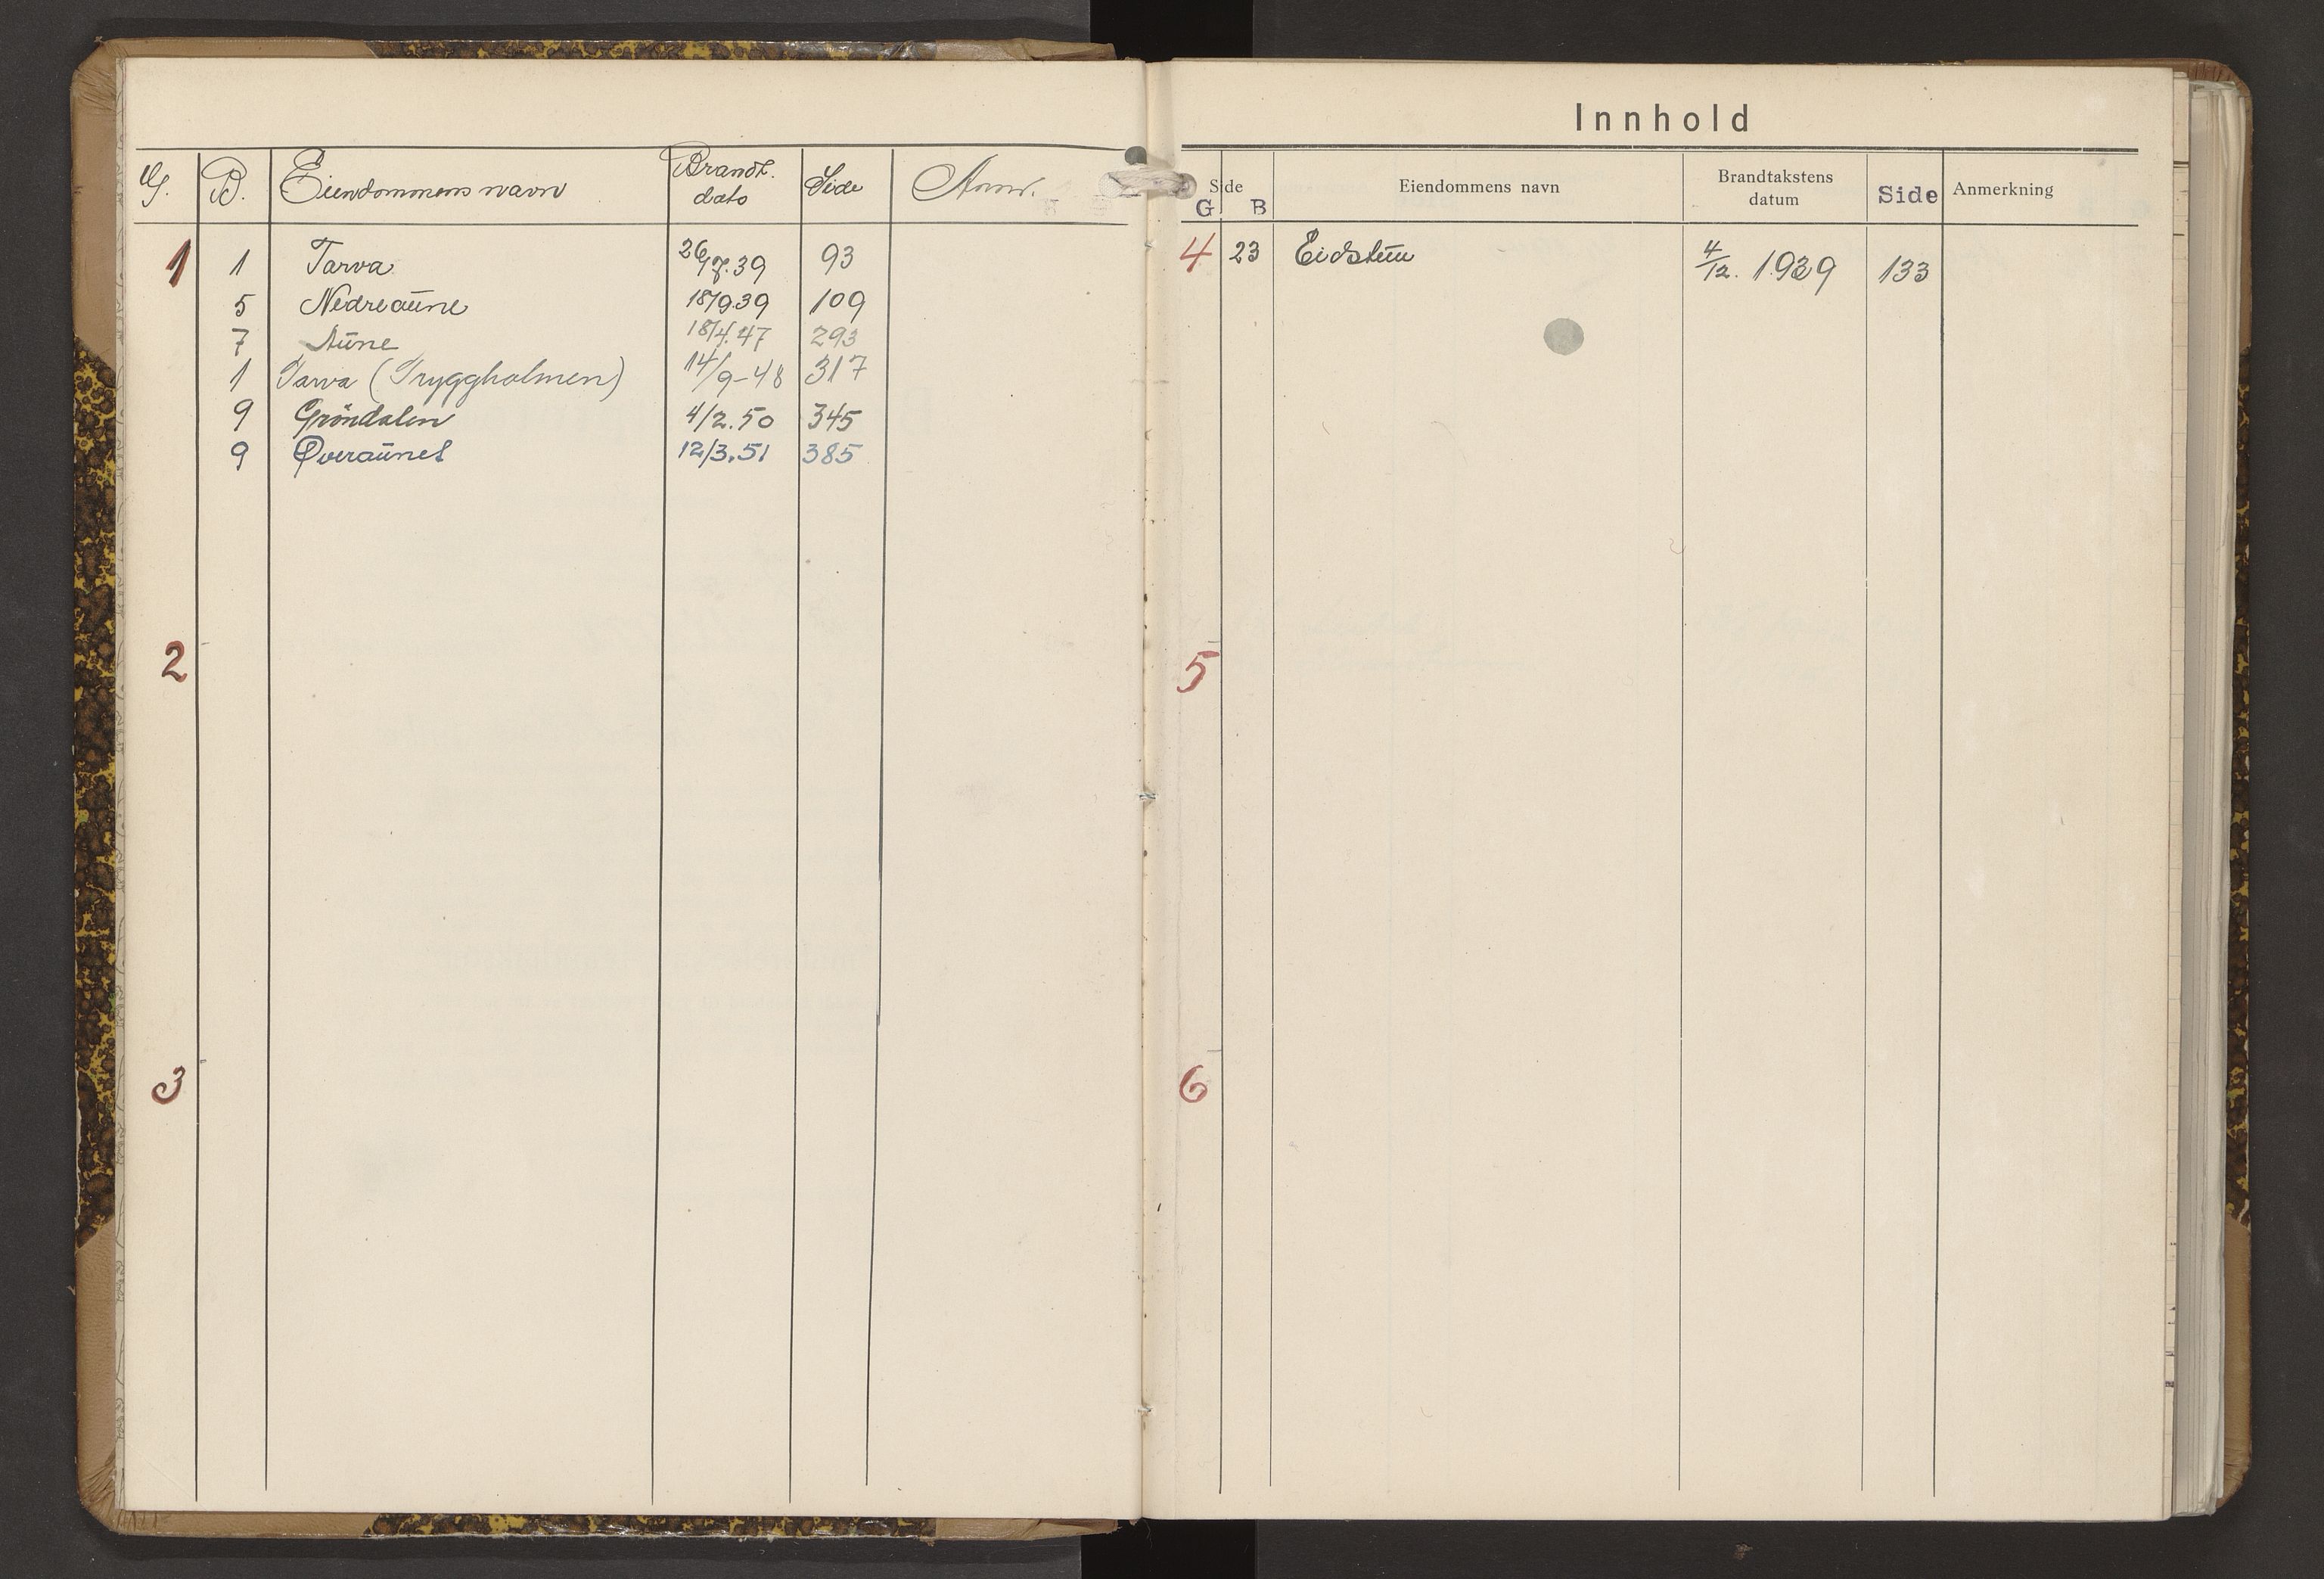 G. B. Eiendommens navn Brandt. dato Side Anm.
1 1 Tarva 26/7.39 93
5 Nedreaune 18/9.39 109
7 Aune 18/4.47 293
1 Tarva (Tryggholmen) 14/9-48 317
9 Gröndalen 4/2.50 345
9 Øveraunet 12/3.51 385
2
3
Innhold
Side G B Eiendommens navn Brandtakstens datum Side Anmerkning
4 23 Eidstun 4/12. 1939 133
5
6